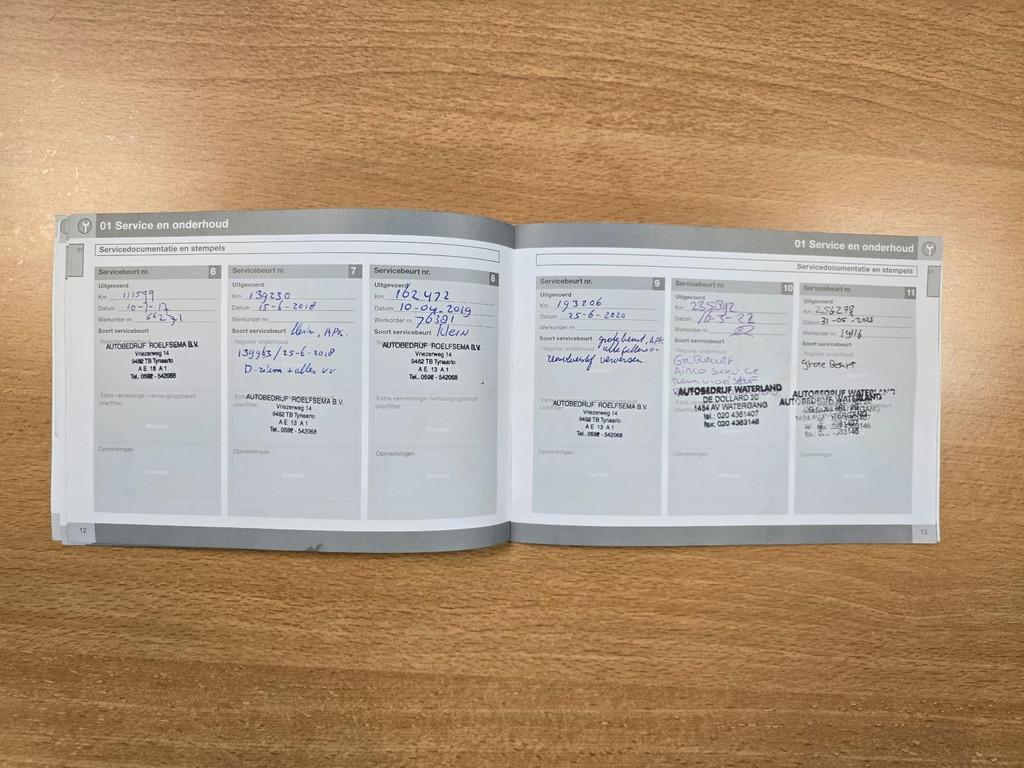 01 Service en onderhoud
Servicedocumentatie en stempels
Servicebeurt nr. 6
Uitgevoerd
Km 111599
Datum 10-7-17
Werkorder nr. 66271
Soort servicebeurt
Regulier onderhoud
AUTOBEDRIJF ROELFSEMA B.V.
Vriezerweg 14
9482 TB Tynaarlo
A E 13 A 1
Tel. 0592 - 542068
Extra verversings-/vervangingsbeurt
olie/filter:
Stempel
Opmerkingen
Stempel
12
Servicebeurt nr. 7
Uitgevoerd
Km 139230
Datum 15-6-2018
Werkorder nr.
Soort servicebeurt Klein, APK.
Regulier onderhoud
139963/25-6-2018
D-riem + alles vv.
Extra verversings-/vervangingsbeurt
olie/filter:
AUTOBEDRIJF ROELFSEMA B.V.
Vriezerweg 14
9482 TB Tynaarlo
A E 13 A 1
Tel. 0592 - 542068
Opmerkingen
Stempel
Servicebeurt nr. 8
Uitgevoerd
Km 162472
Datum 10-04-2019
Werkorder nr. 76381
Soort servicebeurt Klein
AUTOBEDRIJF ROELFSEMA B.V.
Vriezerweg 14
9482 TB Tynaarlo
A E 13 A 1
Tel. 0592 - 542068
Extra verversings-/vervangingsbeurt
olie/filter:
Stempel
Opmerkingen
Stempel
01 Service en onderhoud
Servicedocumentatie en stempels
Servicebeurt nr. 9
Uitgevoerd
Km 193206
Datum 25-6-2020
Werkorder nr.
Soort servicebeurt grote beurt, APK
Regulier onderhoud alle filters vv
remvloeistof verversen.
Extra verversings-/vervangingsbeurt
olie/filter:
AUTOBEDRIJF ROELFSEMA B.V.
Vriezerweg 14
9482 TB Tynaarlo
A E 13 A 1
Tel. 0592 - 542068
Opmerkingen
Stempel
Servicebeurt nr. 10
Uitgevoerd
Km
Datum 16-3-22
Werkorder nr.
Soort servicebeurt
Regulier onderhoud
Gr. Beurt
Airco service
remvloeistof
AUTOBEDRIJF WATERLAND
DE DOLLARD 20
1454 AV WATERGANG
tel: 020 4361407
fax: 020 4363146
Opmerkingen
Stempel
Servicebeurt nr. 11
Uitgevoerd
Km 256298
Datum 31-05-2023
Werkorder nr. 19116
Soort servicebeurt
Regulier onderhoud
Grote Beurt
AUTOBEDRIJF WATERLAND
Opmerkingen
Stempel
13